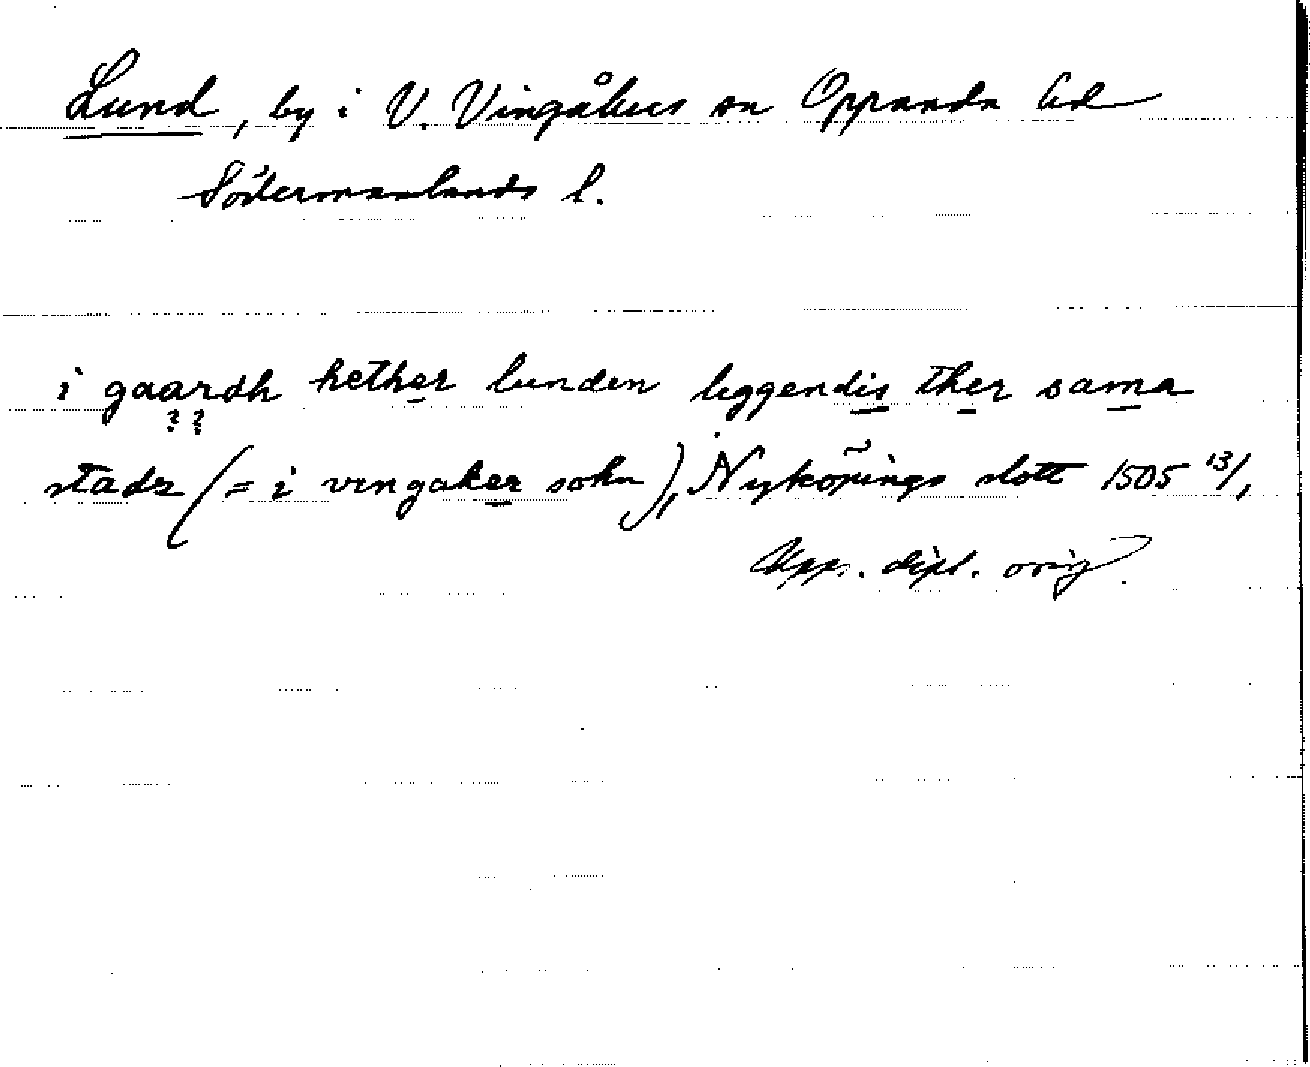 Lund, by i V. Vingåkers sn Oppunda hd
Södermanlands l.
i gaardh hether lunden liggendis ther sama
??
stadz (= i vengaker sokn), Nyköpings slott 1505 13/1
Upp. dipl. orig.